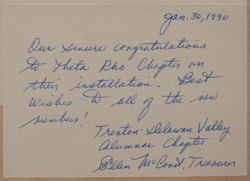 Jan. 30, 1990
Our sincere congratulations
to Theta Rho Chapter on
their installation. Best
Wishes to all of the new
members!
Trenton-Delaware Valley
Alumnae Chapter
Ellen McCord, Treasurer